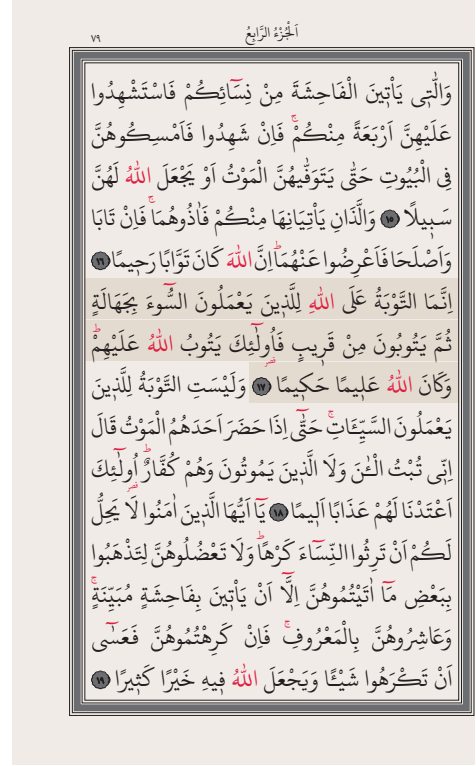 اَلْجُزْءُ الرَّابِعُ
٧٩
وَالّٰت۪ي يَأْت۪ينَ الْفَاحِشَةَ مِنْ نِسَٓائِكُمْ فَاسْتَشْهِدُوا
عَلَيْهِنَّ اَرْبَعَةً مِنْكُمْۚ فَاِنْ شَهِدُوا فَاَمْسِكُوهُنَّ
فِي الْبُيُوتِ حَتّٰى يَتَوَفّٰيهُنَّ الْمَوْتُ اَوْ يَجْعَلَ اللّٰهُ لَهُنَّ
سَب۪يلًا ﴿١٥﴾ وَالَّذَانِ يَأْتِيَانِهَا مِنْكُمْ فَاٰذُوهُمَاۚ فَاِنْ تَابَا
وَاَصْلَحَا فَاَعْرِضُوا عَنْهُمَاۜ اِنَّ اللّٰهَ كَانَ تَوَّابًا رَح۪يمًا ﴿١٦﴾
اِنَّمَا التَّوْبَةُ عَلَى اللّٰهِ لِلَّذ۪ينَ يَعْمَلُونَ السُّٓوءَ بِجَهَالَةٍ
ثُمَّ يَتُوبُونَ مِنْ قَر۪يبٍ فَاُو۬لٰٓئِكَ يَتُوبُ اللّٰهُ عَلَيْهِمْۜ
وَكَانَ اللّٰهُ عَل۪يمًا حَك۪يمًا ﴿١٧﴾ وَلَيْسَتِ التَّوْبَةُ لِلَّذ۪ينَ
يَعْمَلُونَ السَّيِّـَٔاتِۚ حَتّٰٓى اِذَا حَضَرَ اَحَدَهُمُ الْمَوْتُ قَالَ
اِنّ۪ي تُبْتُ الْـٰٔنَ وَلَا الَّذ۪ينَ يَمُوتُونَ وَهُمْ كُفَّارٌۜ اُو۬لٰٓئِكَ
اَعْتَدْنَا لَهُمْ عَذَابًا اَل۪يمًا ﴿١٨﴾ يَٓا اَيُّهَا الَّذ۪ينَ اٰمَنُوا لَا يَحِلُّ
لَكُمْ اَنْ تَرِثُوا النِّسَٓاءَ كَرْهًاۜ وَلَا تَعْضُلُوهُنَّ لِتَذْهَبُوا
بِبَعْضِ مَٓا اٰتَيْتُمُوهُنَّ اِلَّٓا اَنْ يَأْت۪ينَ بِفَاحِشَةٍ مُبَيِّنَةٍۚ
وَعَاشِرُوهُنَّ بِالْمَعْرُوفِۚ فَاِنْ كَرِهْتُمُوهُنَّ فَعَسٰٓى
اَنْ تَكْرَهُوا شَيْـًٔا وَيَجْعَلَ اللّٰهُ ف۪يهِ خَيْرًا كَث۪يرًا ﴿١٩﴾